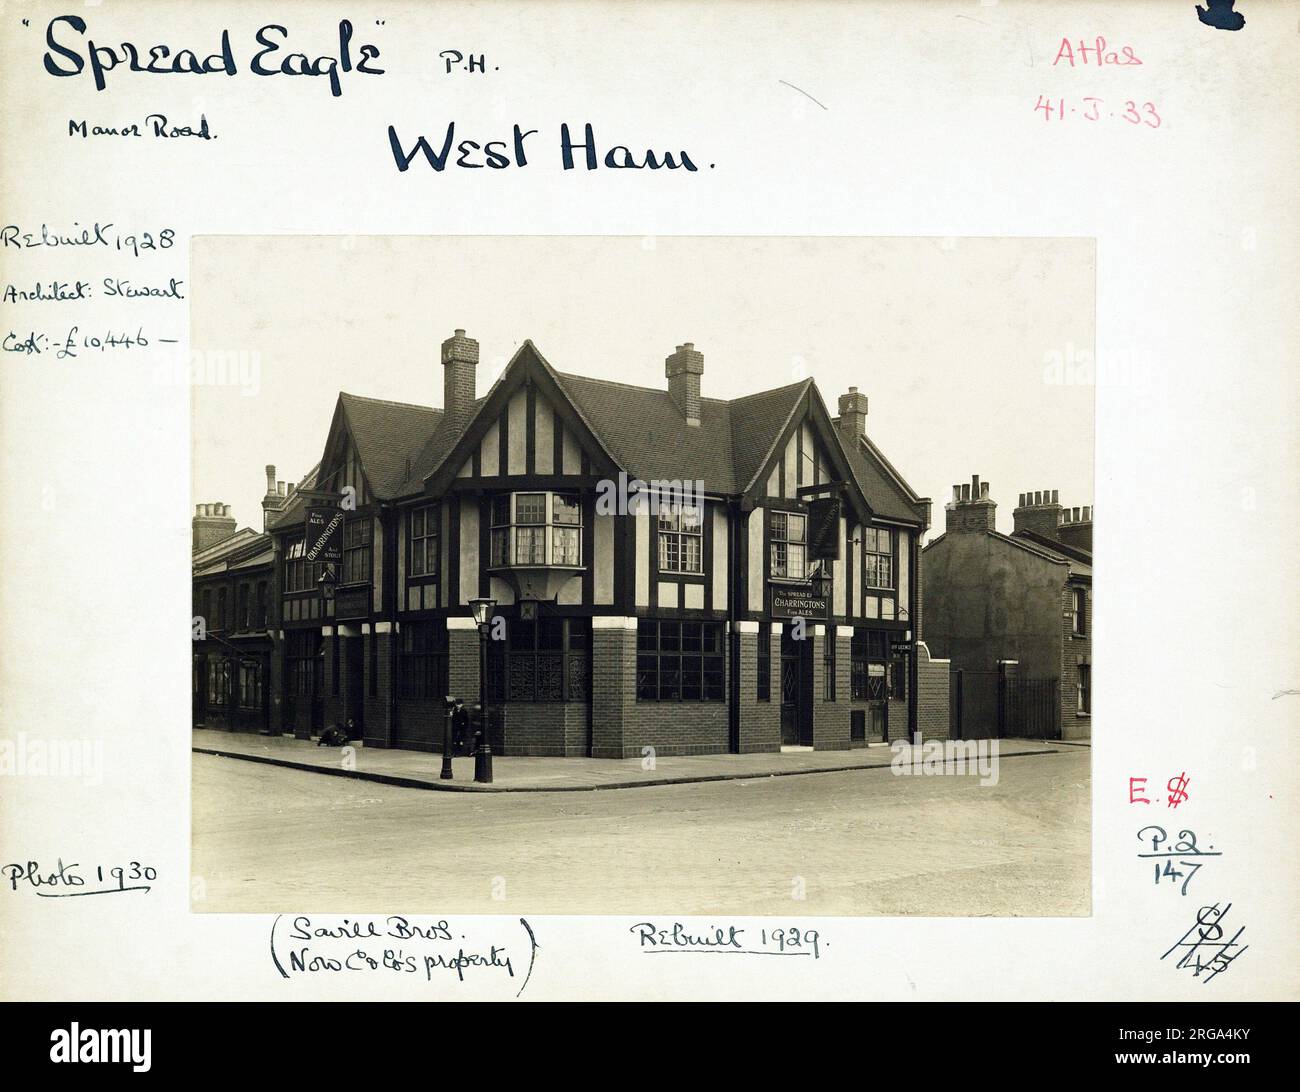 "Spread Eagle" P.H.
Manor Road.
West Ham.
Atlas
41.J.33
Rebuilt 1928
Architect: Stewart.
Cost:- £10,446 —
Fine
ALES
CHARRINGTON'S
AND
STOUT
The SPREAD EAGLE
CHARRINGTON'S
FINE ALES
OFF LICENCE
E.$
P.2.
147
S
45
Photo 1930
(Savill Bros.
Now C & Co's property)
Rebuilt 1929.
alamy
alamy
alamy
alamy
alamy
Image ID: 2RGA4KY
www.alamy.com